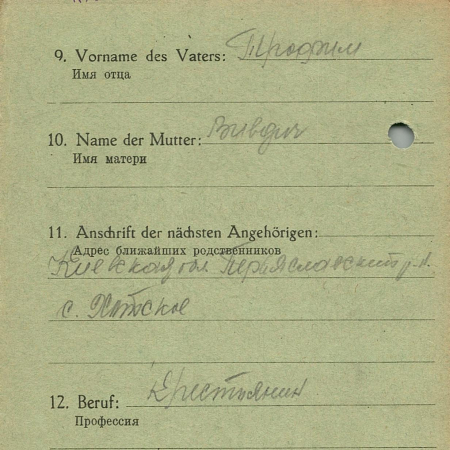 9. Vorname des Vaters: Трофим
Имя отца
10. Name der Mutter: Вивдич
Имя матери
11. Anschrift der nächsten Angehörigen:
Адрес ближайших родственников
Киевская обл Переяславский р-н.
с. Хоцкое
12. Beruf: Крестьянин
Профессия